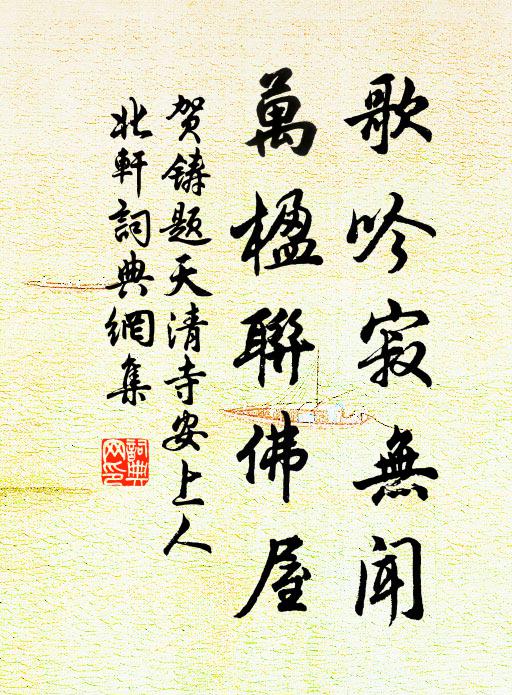 歌吟寂無聞
萬楹聯佛屋
贺鑄題天清寺安上人
北軒詞典網集
詞典网印